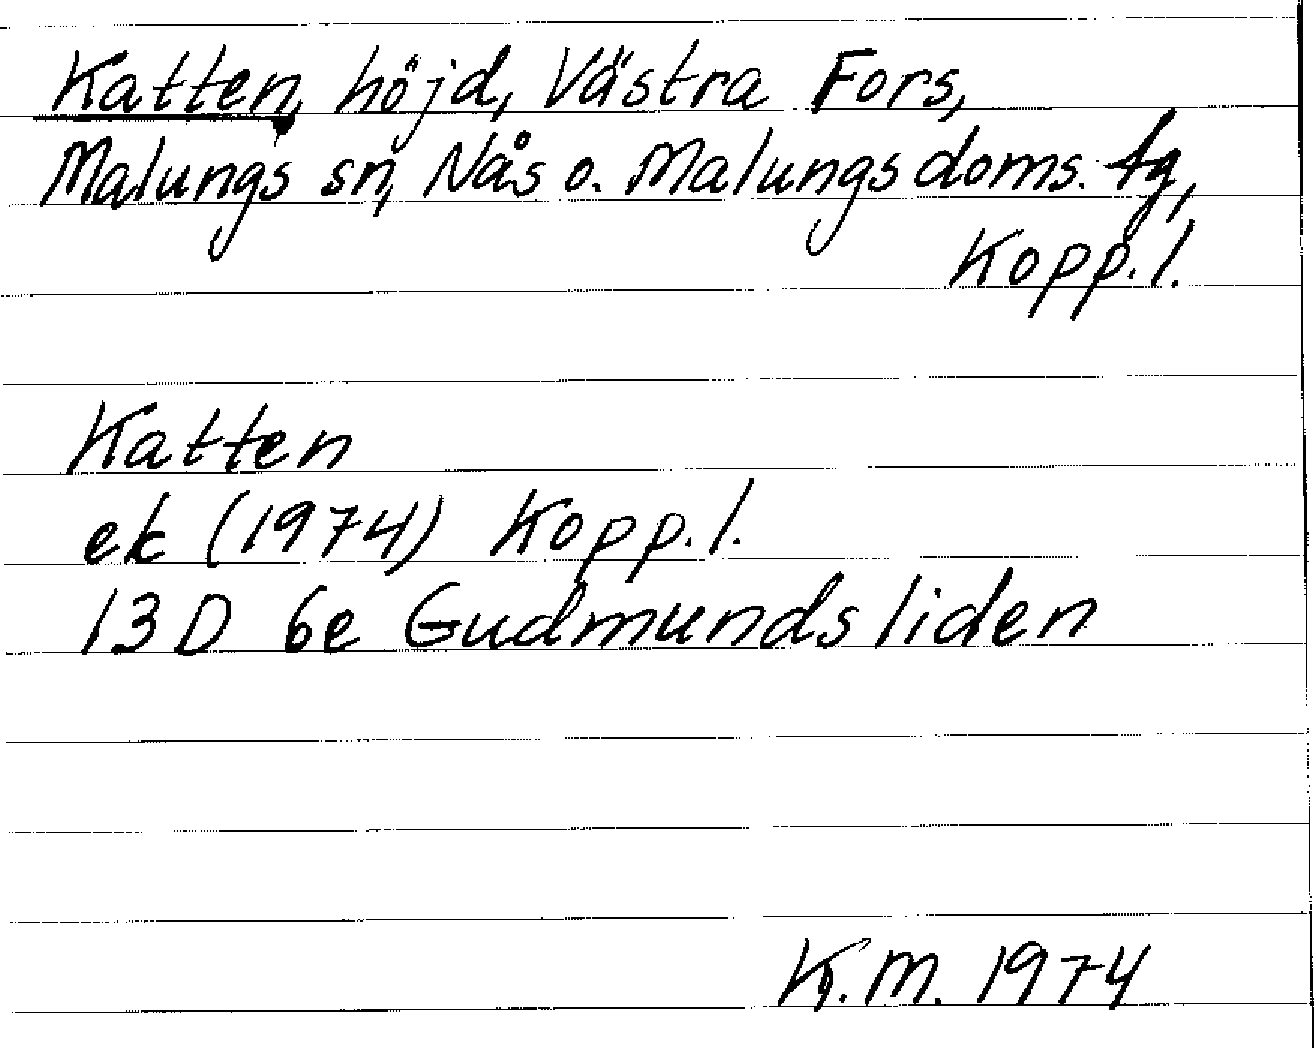 Katten, höjd, Västra Fors,
Malungs sn, Nås o. Malungs doms. tg,
Kopp. l.
Katten
ek (1974) Kopp. l.
13D 6e Gudmundsliden
K.M. 1974